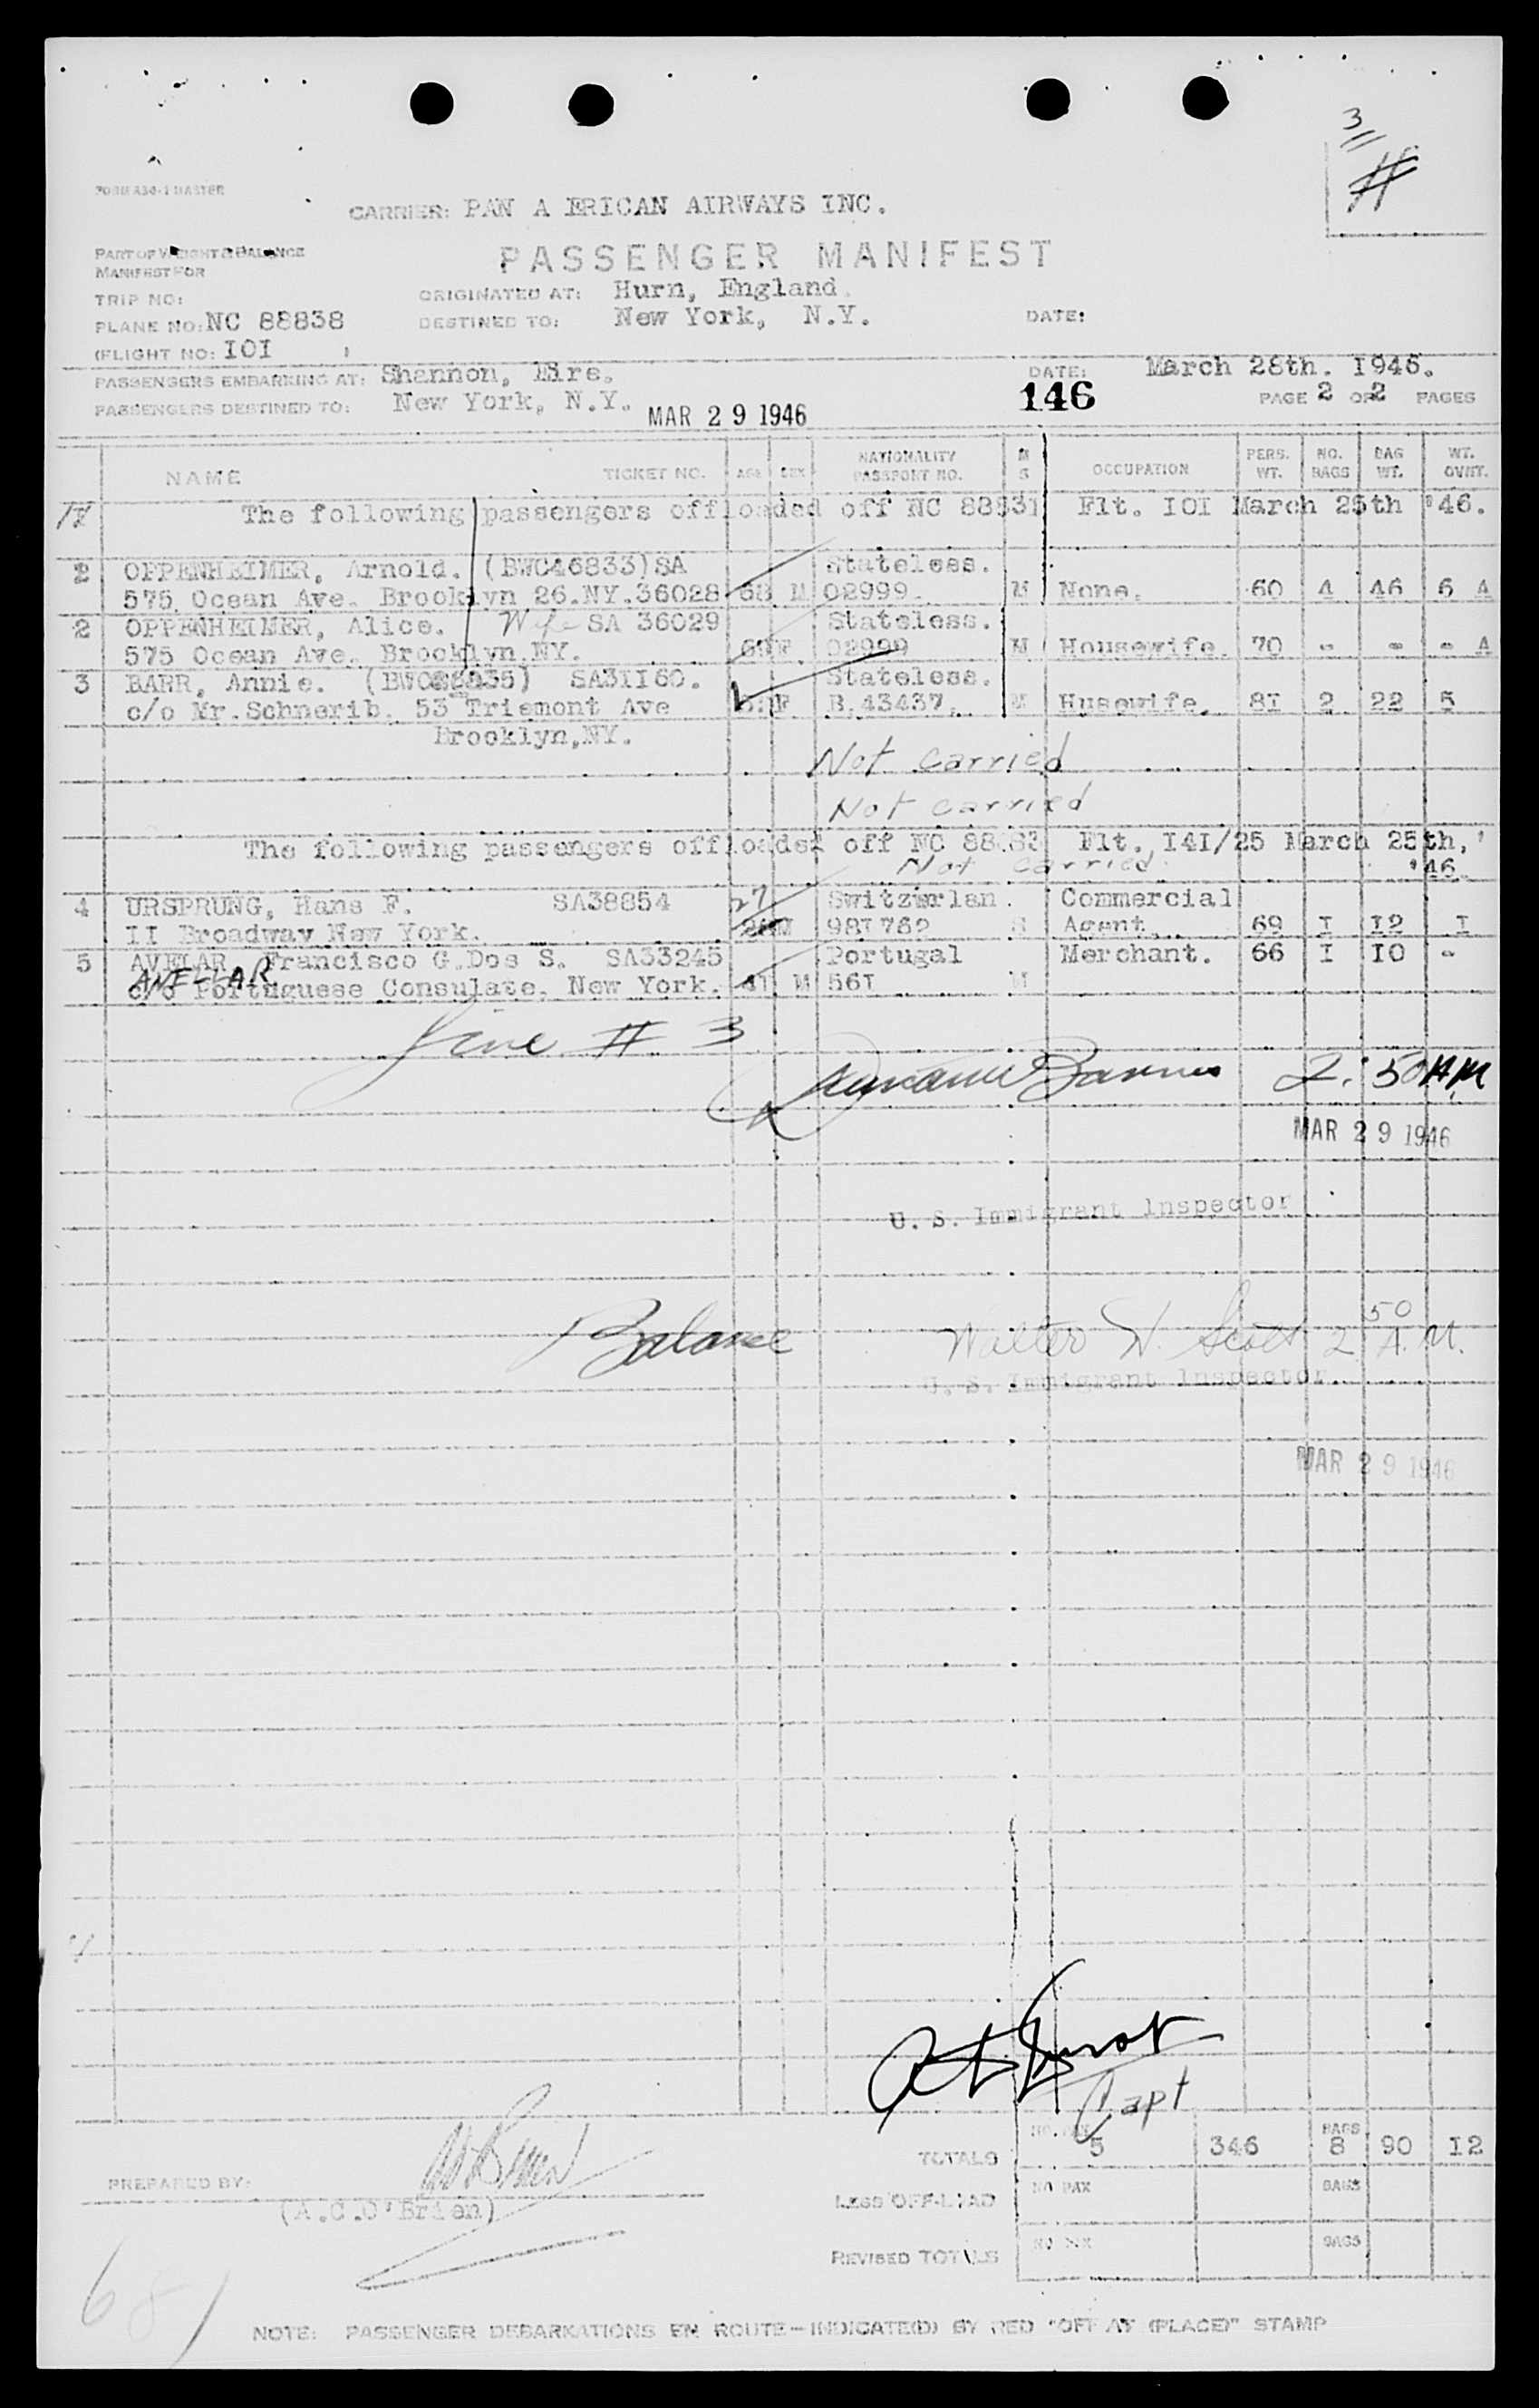 3
#
FORM A30-1 MASTER
CARRIER: PAN A ERICAN AIRWAYS INC.
PART OF WEIGHT & BALANCE
MANIFEST FOR
PASSENGER MANIFEST
TRIP NO:
ORIGINATED AT: Hurn, England.
PLANE NO: NC 88838
DESTINED TO: New York, N.Y.
DATE:
(FLIGHT NO: IOI )
PASSENGERS EMBARKING AT: Shannon, Eire.
DATE: March 28th. I946.
PASSENGERS DESTINED TO: New York, N.Y.
MAR 29 1946
146
PAGE 2 OF 2 PAGES
NAME TICKET NO. AGE SEX NATIONALITY PASSPORT NO. M S OCCUPATION PERS. WT. NO. BAGS BAG WT. WT. OVWT.
The following passengers offloaded off NC 88831 Flt. IOI March 25th '46.
2 OPPENHEIMER, Arnold. (BWC46833) SA Stateless.
575 Ocean Ave. Brooklyn 26.NY. 36028 68 M 02999. M None. 60 4 46 6 A
2 OPPENHEIMER, Alice. Wife SA 36029 Stateless.
575 Ocean Ave. Brooklyn NY. F 02999 M Housewife. 70 - - - A
3 BARR, Annie. SA3II60. Stateless.
c/o Mr. Schnerib. 53 Triemont Ave F B.43437. M Husewife. 8I 2 22 5
Brooklyn, NY.
Not carried
Not carried
The following passengers offloaded off NC Flt. I4I/25 March 25th,'
Not carried '46
4 URSPRUNG, Hans F. SA38854 27 Switzerlan. Commercial
II Broadway New York. M 98I762 S Agent. 69 I I2 I
5 AVELAR, Francisco G.Dos S. SA33245 Portugal Merchant. 66 I IO -
AVELLAR
c/o Portuguese Consulate. New York. 4I M 56I M
Line # 3
Barnes 2:50 AM
MAR 29 1946
U. S. Immigrant Inspector
Balance
Walter W. Scott 2 50 A.M.
U. S. Immigrant Inspector
MAR 29 1946
Capt
TOTALS NO. PAX 5 346 BAGS 8 90 I2
PREPARED BY:
(A.C.O'Brien)
LESS OFF-LOAD NO PAX BAGS
REVISED TOTALS NO PAX BAGS
NOTE: PASSENGER DEBARKATIONS EN ROUTE—INDICATE(D) BY RED "OFF AT (PLACE)" STAMP